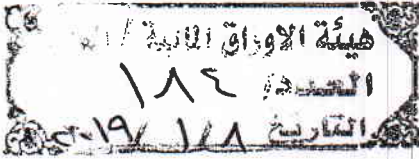 هيئة الاوراق المالية /
العدد / ١٨٤
التاريخ ٨ / ١ / ٢٠١٩